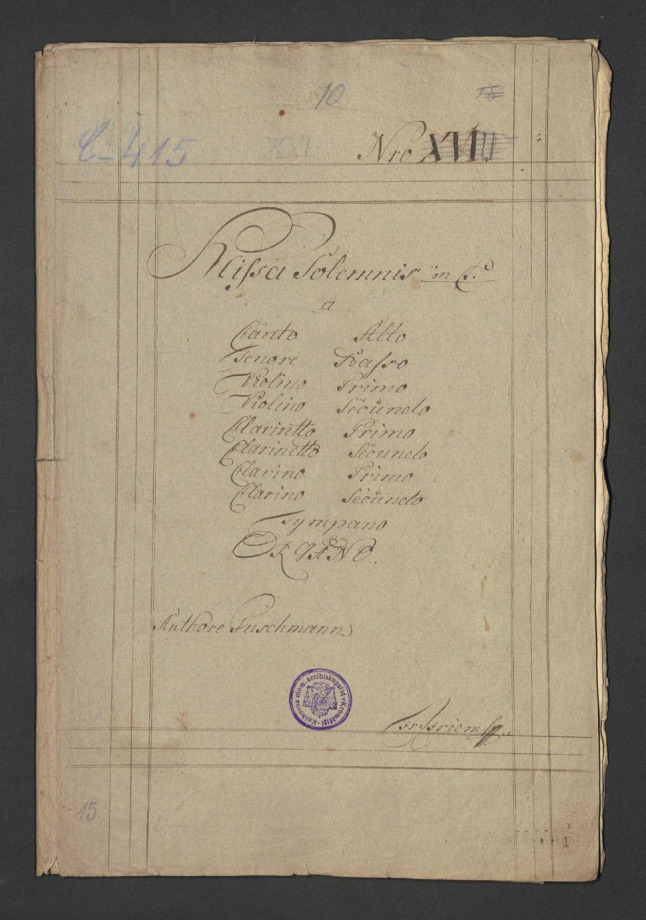 10
C-415
XXI
Nro XVI
Missa Solemnis in C.
a
Canto Alto
Tenore Basso
Violino Primo
Violino Secundo
Clarintto Primo
Clarinetto Secundo
Clarino Primo
Clarino Secundo
Tympano
ORGANO.
Authore Puschmann
Knihovna olom. arcibiskupství v Kroměříži
15
1